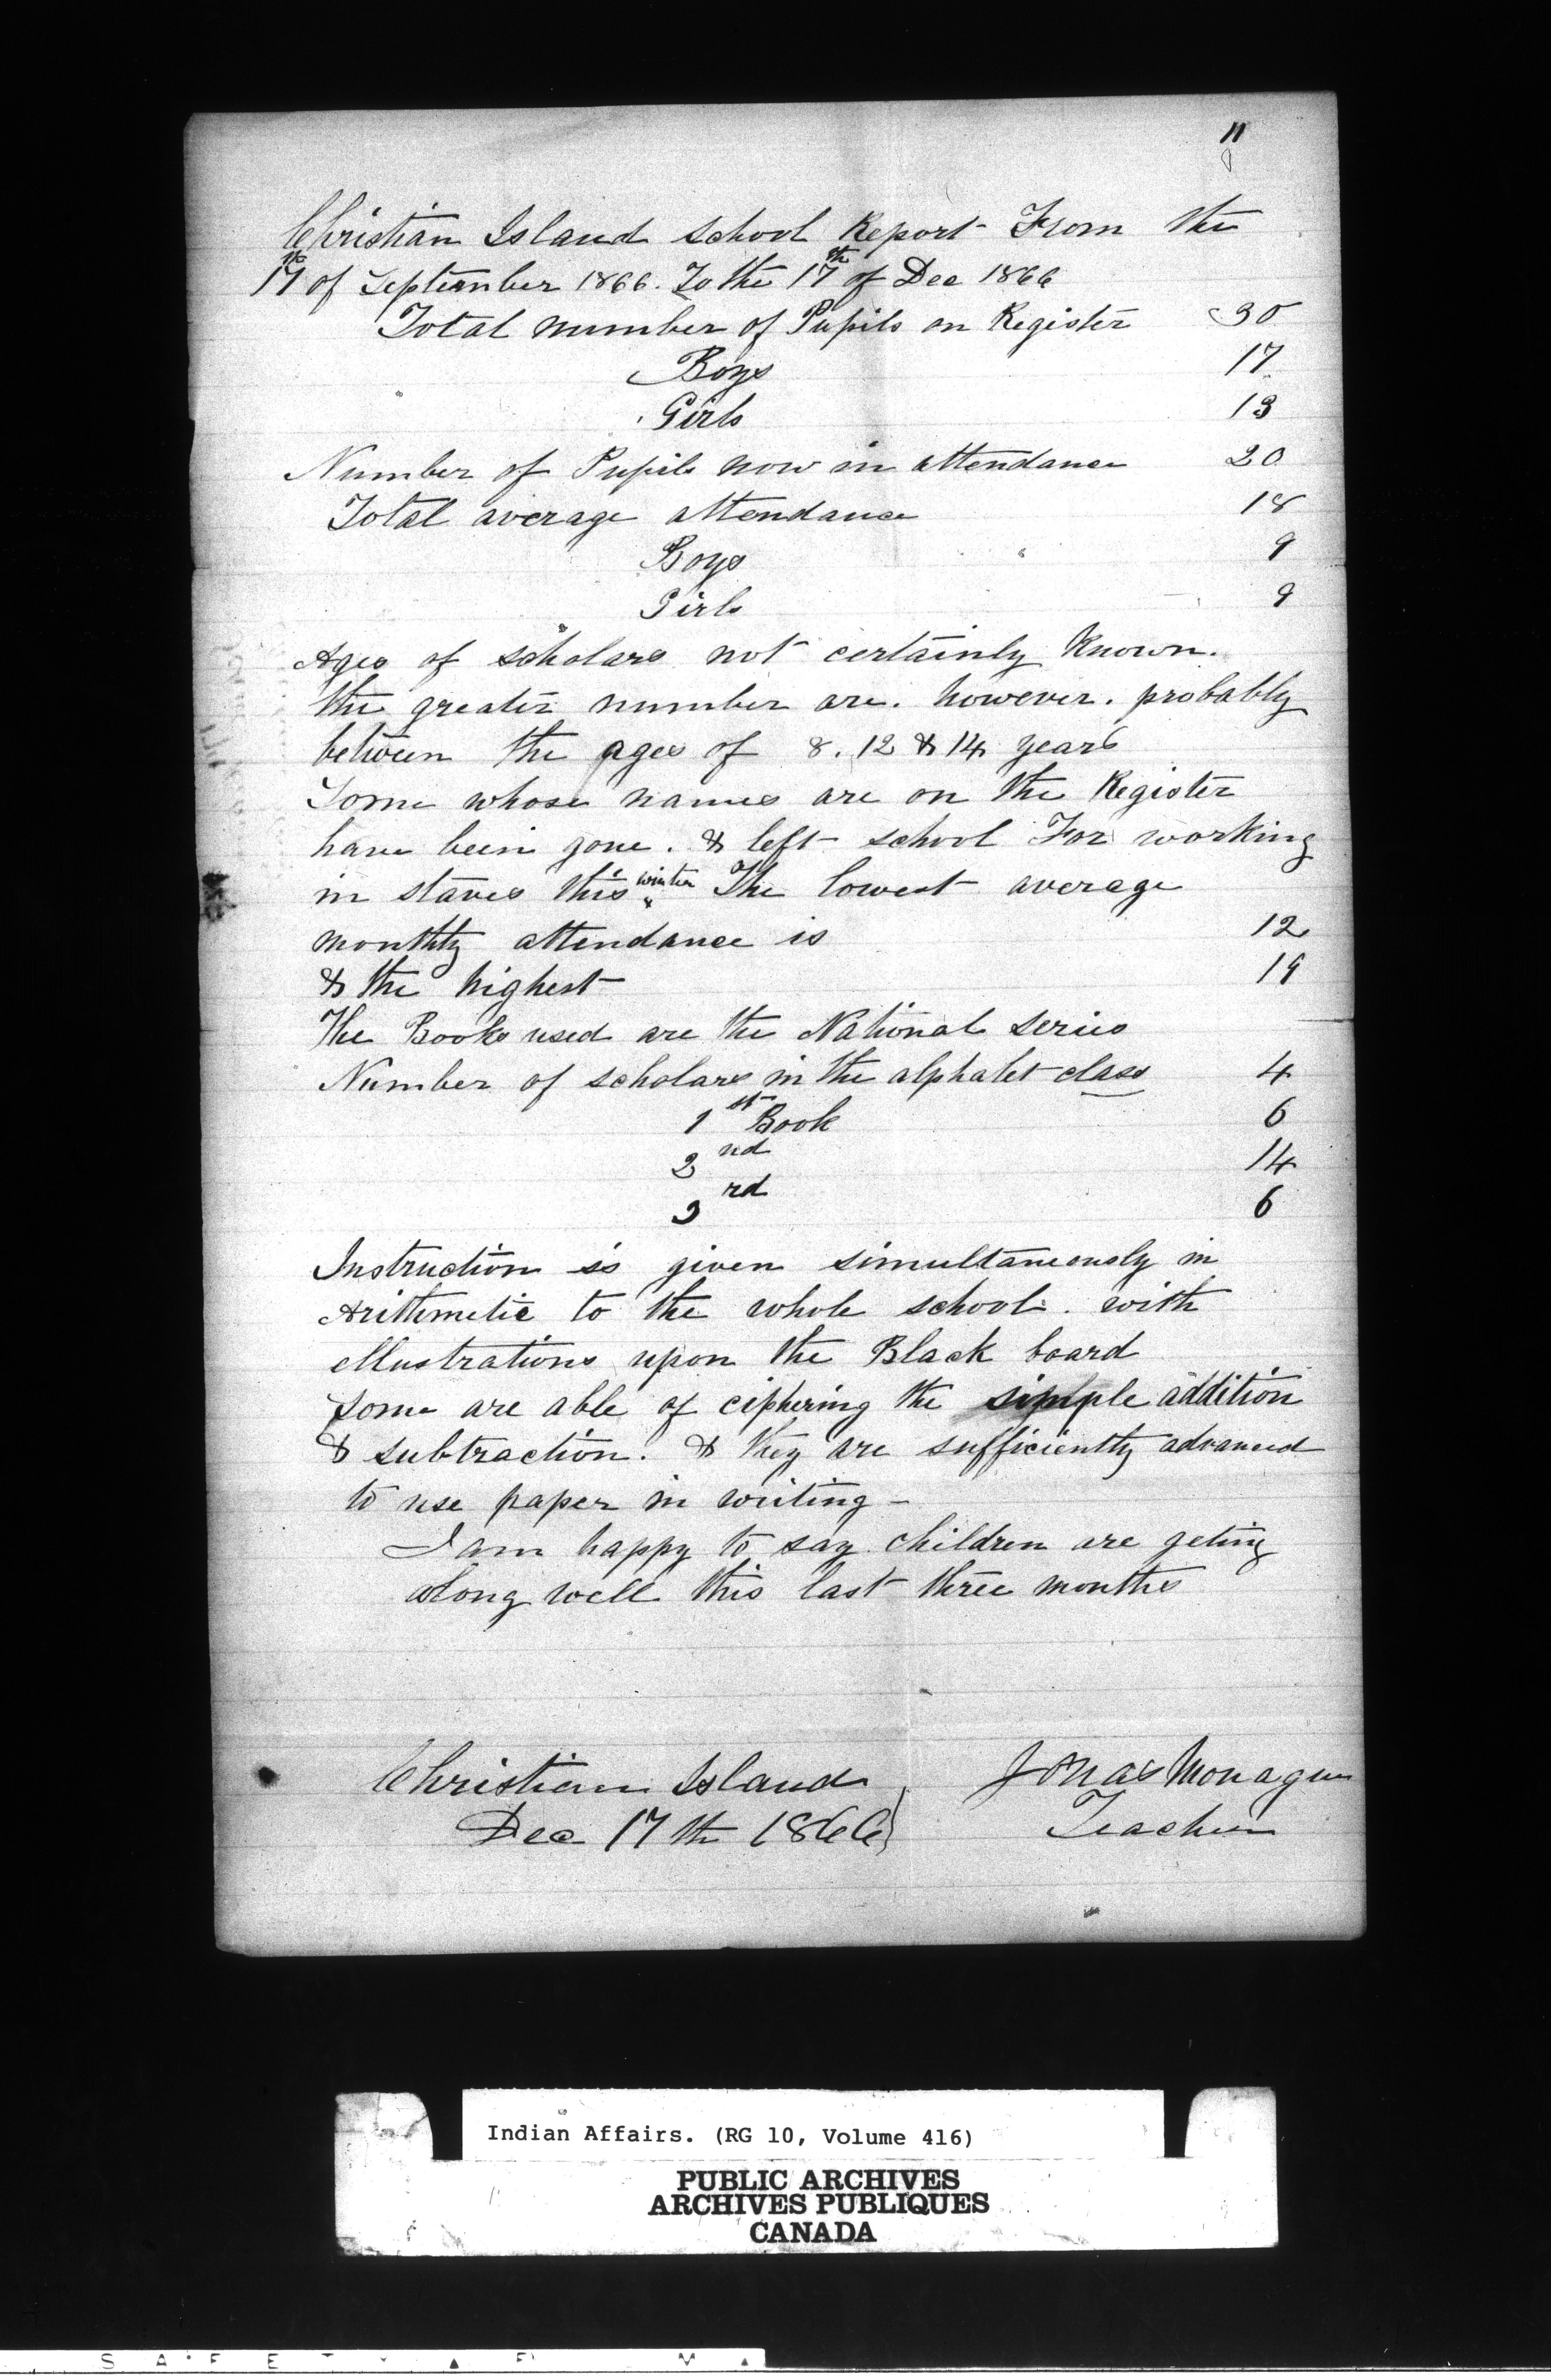 11
Christian Island school Report From the
17th of September 1866. To the 17th of Dec 1866
Total number of Pupils on Register 30
Boys 17
Girls 13
Number of Pupils now in attendance 20
Total average attendance 18
Boys 9
Girls 9
Ages of scholars not certainly known.
the greater number are. however. probably
between the ages of 8. 12 & 14 years
Some whose names are on the Register
have been gone. & left school For working
in staves this winter The lowest average
monthly attendance is 12
& the highest 19
The Books used are the National series
Number of scholars in the alphabet class 4
1st Book 6
2nd 14
3rd 6
Instruction is given simultaneously in
Arithmetic to the whole school. with
illustrations upon the Black board
Some are able of ciphering the simple addition
& subtraction. & they are sufficiently advanced
to use paper in writing -
I am happy to say children are geting
along well this last three months
Christian Island Jonas Monague
Dec 17th 1866 Teacher
Indian Affairs. (RG 10, Volume 416)
PUBLIC ARCHIVES
ARCHIVES PUBLIQUES
CANADA